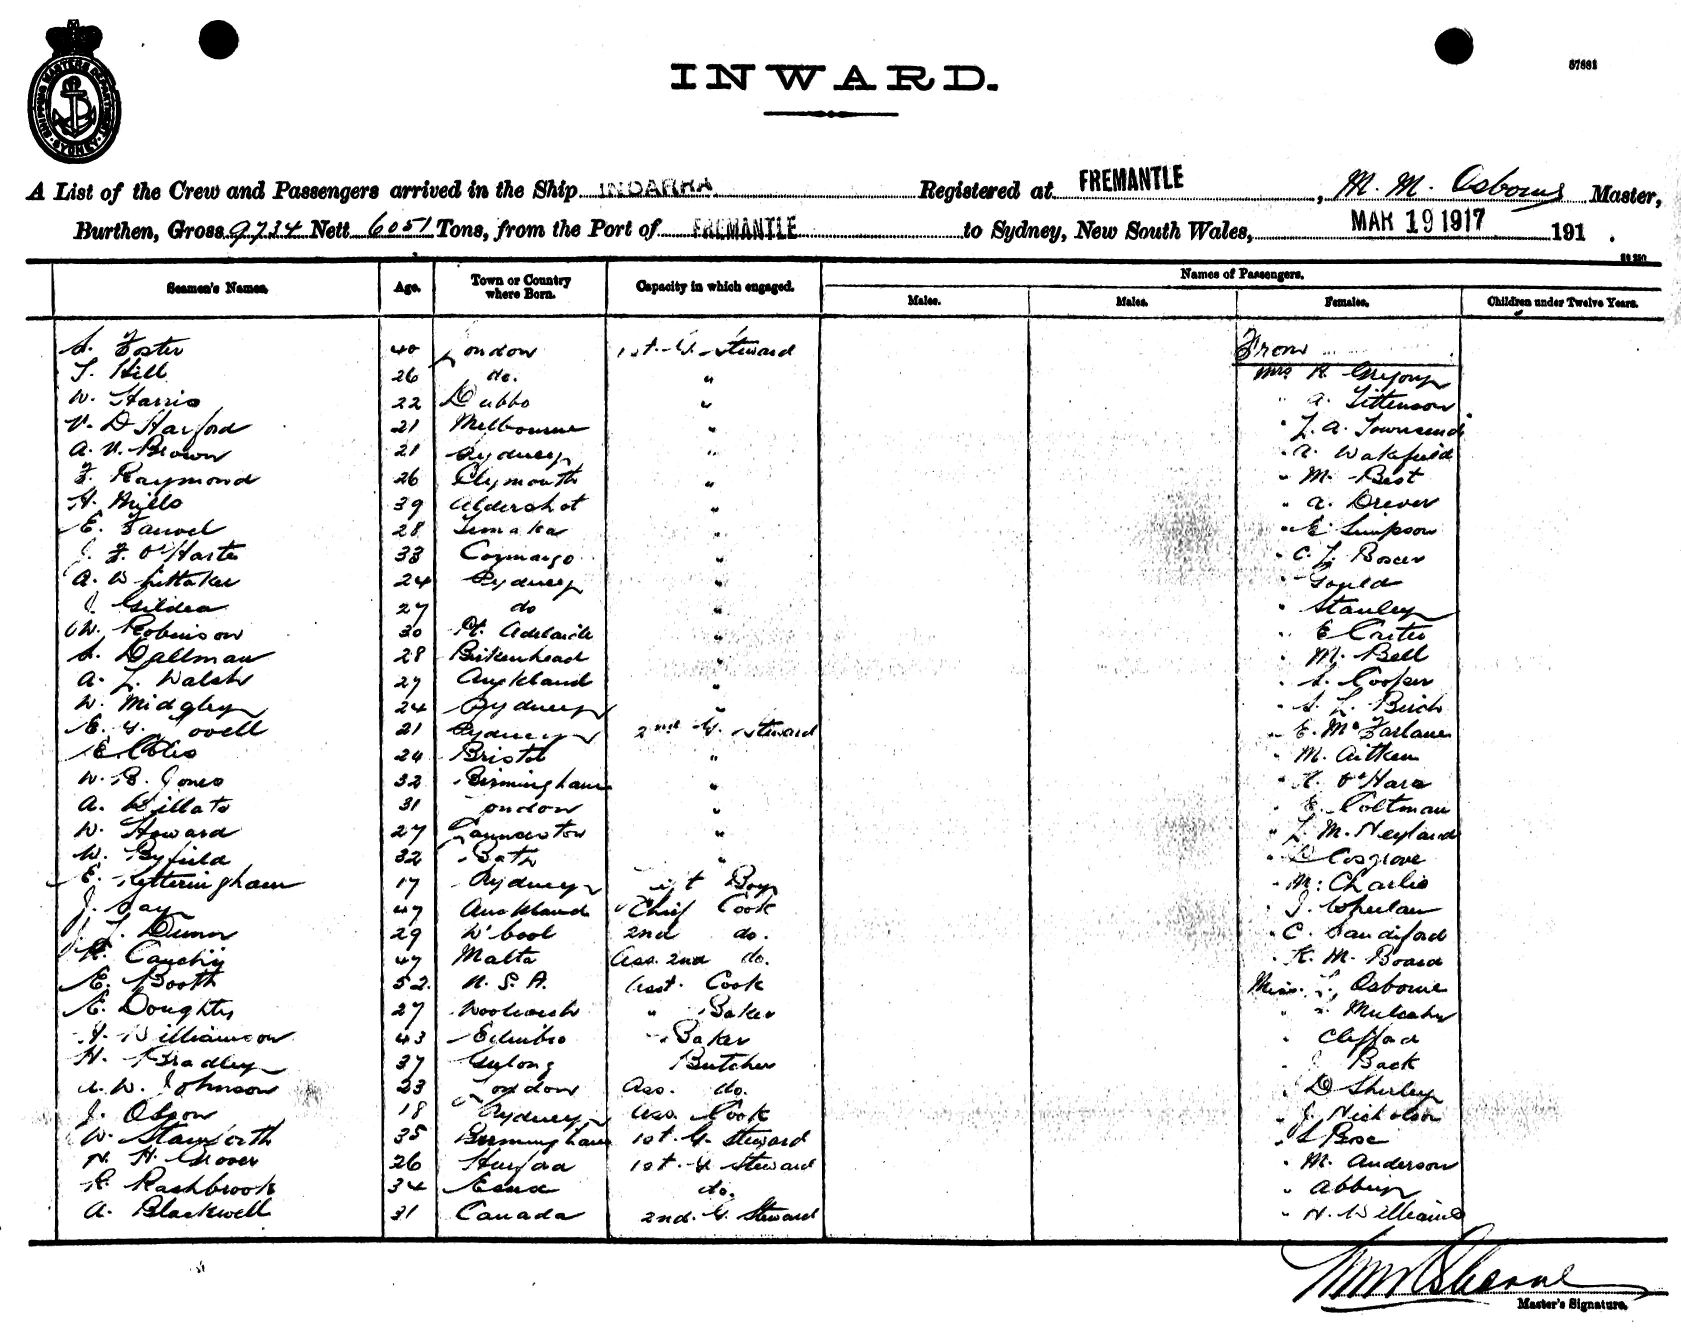 INWARD.
57681
A List of the Crew and Passengers arrived in the Ship INDARRA Registered at FREMANTLE, M. M. Osborne Master,
Burthen, Gross 9734 Nett 6051 Tons, from the Port of FREMANTLE to Sydney, New South Wales, MAR 19 1917 191 .
Seamen's Names. Age. Town or Country where Born. Capacity in which engaged. Names of Passengers.
Males. Males. Females. Children under Twelve Years.
S. Foster 40 London 1st. G. Steward From
T. Hill 26 do. " Mrs R. Gregory
W. Harris 22 Dubbo " " A.
V. D Harford 21 Melbourne " " L. A. Townsend
A. V. Brown 21 Sydney " " A. Wakefield
F. Raymond 26 Plymouth " " M. Best
H. Mills 39 Aldershot " " A. Drever
E. 28 Timaka " " E Simpson
J. F. O'Harte 33 Cozmargo " " C. L.
A. Whittaker 24 Sydney " " Gould
J. Gildea 27 do " " Stanley
W. Robinson 30 Pt. Adelaide " " E Carter
S. Dallman 28 Birkenhead " " M. Bell
A. L. Walsh 27 Auckland " " S. Cooper
W. Midgley 24 Sydney " " S. L. Birch
E. G. Lovell 21 Sydney 2nd G. Steward " E. McFarlane
E. Coles 24 Bristol " " M. Aitken
W. B. Jones 32 Birmingham " " K. O'Hara
A. Willats 31 London " " E. Coltman
W. Howard 27 Launceston " " L. M. Neyland
W. Byfield 32 Bath " " D Cosgrove
E. Ketteringham 17 Sydney Lift Boy " M. Charlie
J. Gay 47 Auckland Chief Cook " J.
J. T. Dunn 29 W'bool 2nd do. " C. Sandiford
R. Cauchy 47 Malta Ass. 2nd do. " K. M. Board
E. Booth 52. U. S. A. Asst. Cook Miss. L. Osborne
E. Doughty 27 Woolwich " Baker " Mulcahy
H. Williamson 43 Edinbro " Baker " Clifford
H. Bradley 37 Gelong Butcher " J. Back
A. W. Johnson 23 London Ass. do. " D Shirley
J. Osborn 18 Sydney Ass. Cook " J. Nicholson
W. Stanforth 35 Birmingham 1st. G. Steward " L Bose
H. H. Grover 26 1st. G Steward " M. Anderson
R. Rashbrook 34 do. "
A. Blackwell 31 Canada 2nd. G. Steward " N. Williams
Master's Signature.